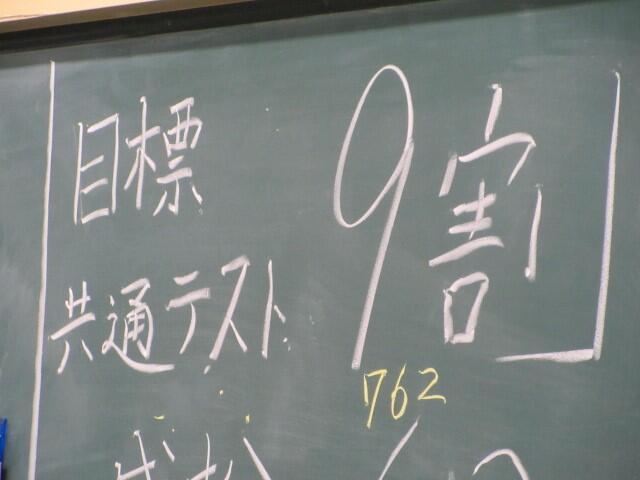 目標 9割
共通テスト
762